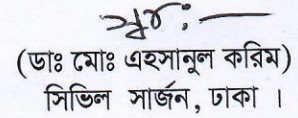 স্বাঃ —
(ডাঃ মোঃ এহসানুল করিম)
সিভিল সার্জন, ঢাকা ।